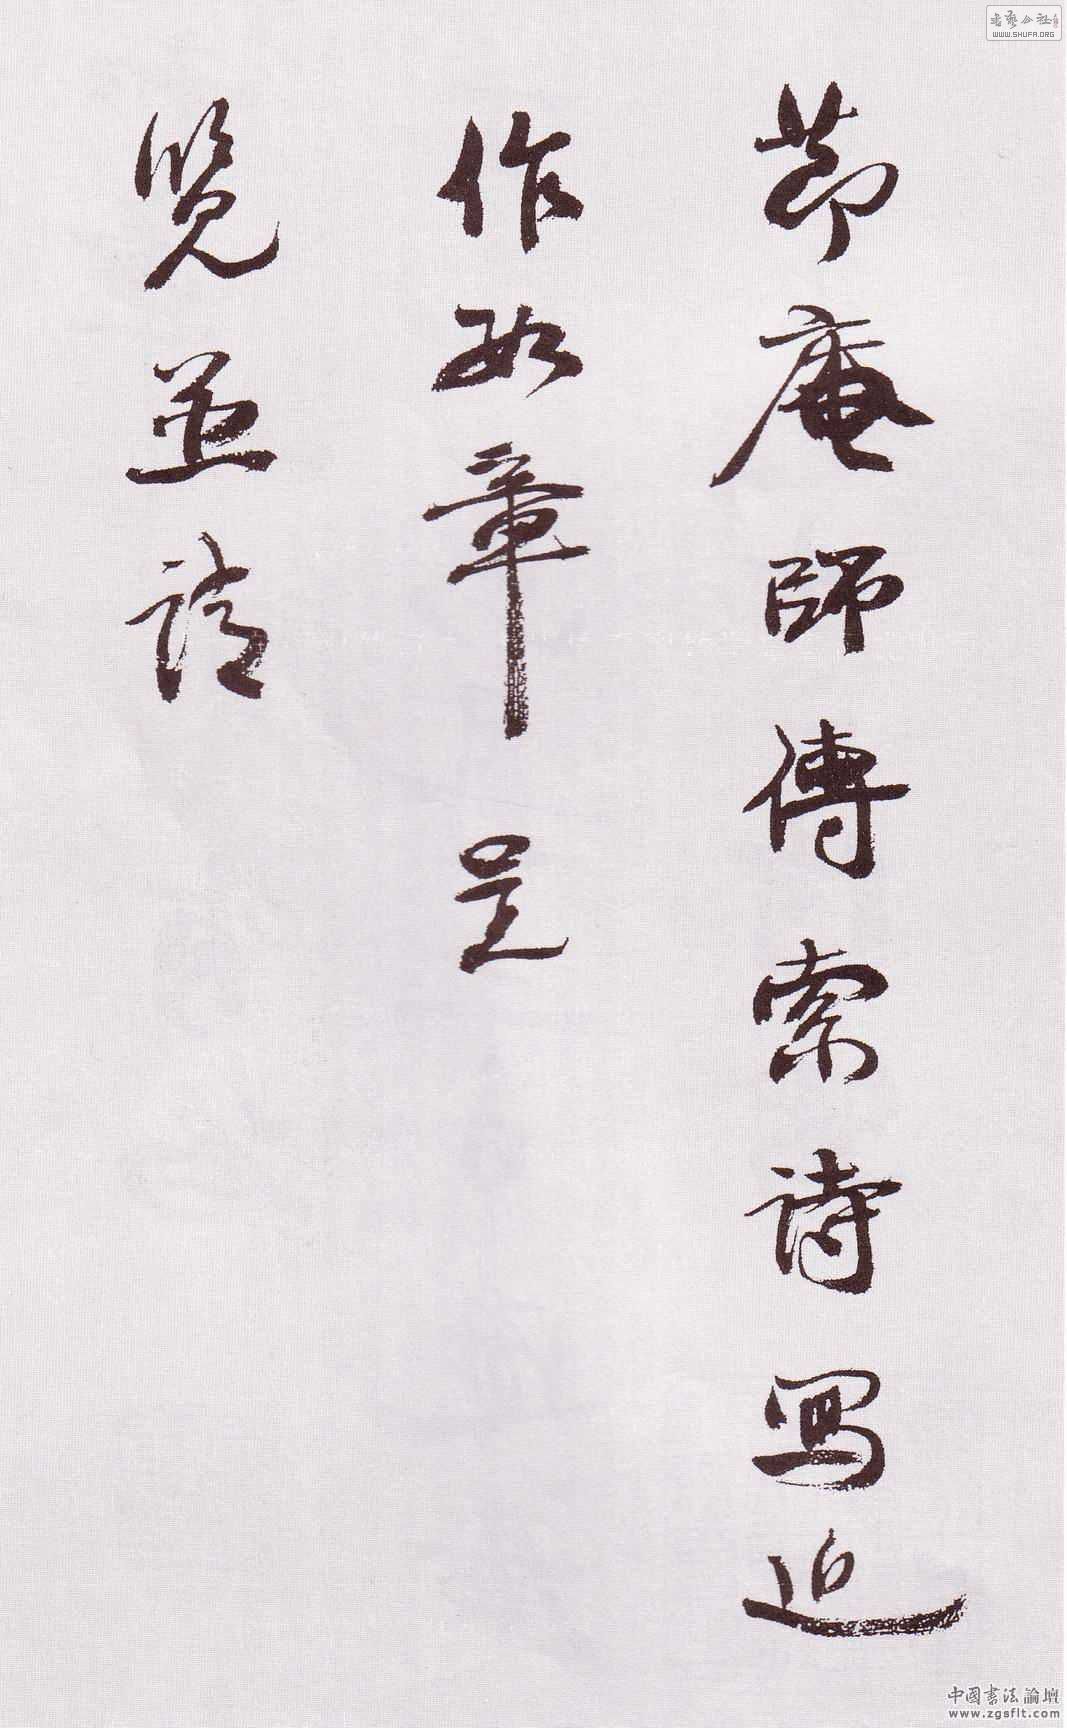 書藝公社
WWW.SHUFA.ORG
莭庵師傅索詩寫近
作數章呈
覽並請
中國書法論壇
www.zgsflt.com